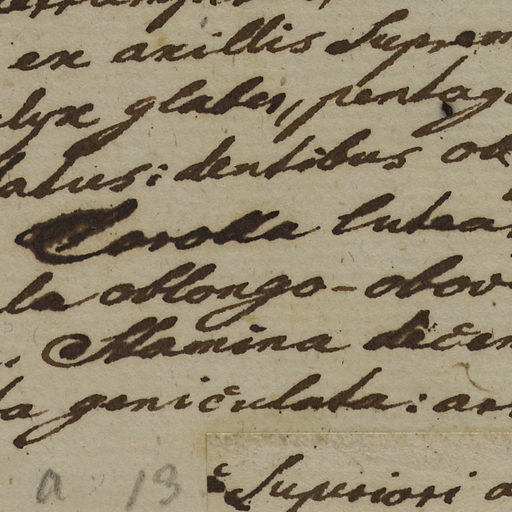 ex axillis Suprem
lyx glaber, pentag
latus: dentibus ob
Corolla lutea
la oblongo-obov
Stamina decem
ta geniculata: an
a 13
Superiori a